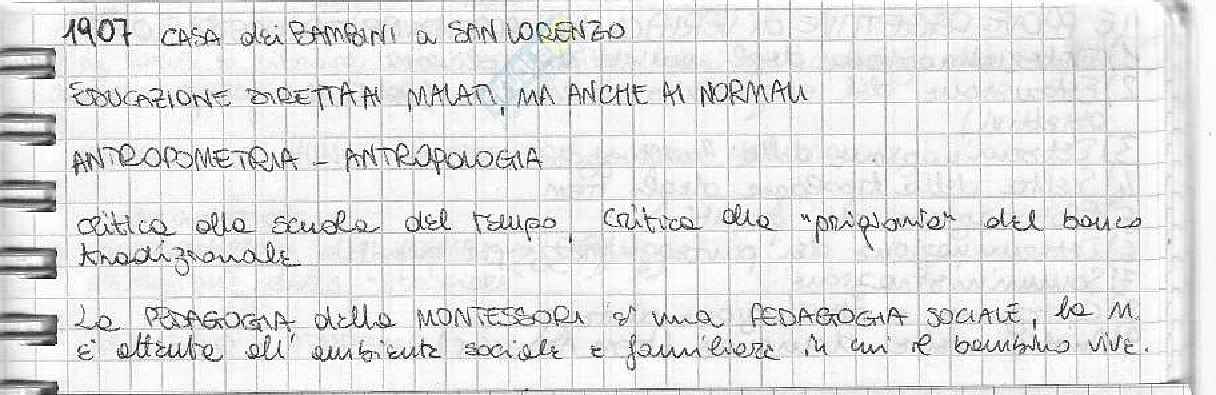 1907 CASA dei BAMBINI a SAN LORENZO
EDUCAZIONE DIRETTA AI MALATI, MA ANCHE AI NORMALI
ANTROPOMETRIA - ANTROPOLOGIA
critica alla scuola del tempo, critica alla "prigionia" del banco
tradizionale
La PEDAGOGIA della MONTESSORI è una PEDAGOGIA SOCIALE, la M.
è attenta all'ambiente sociale e familiare in cui il bambino vive.